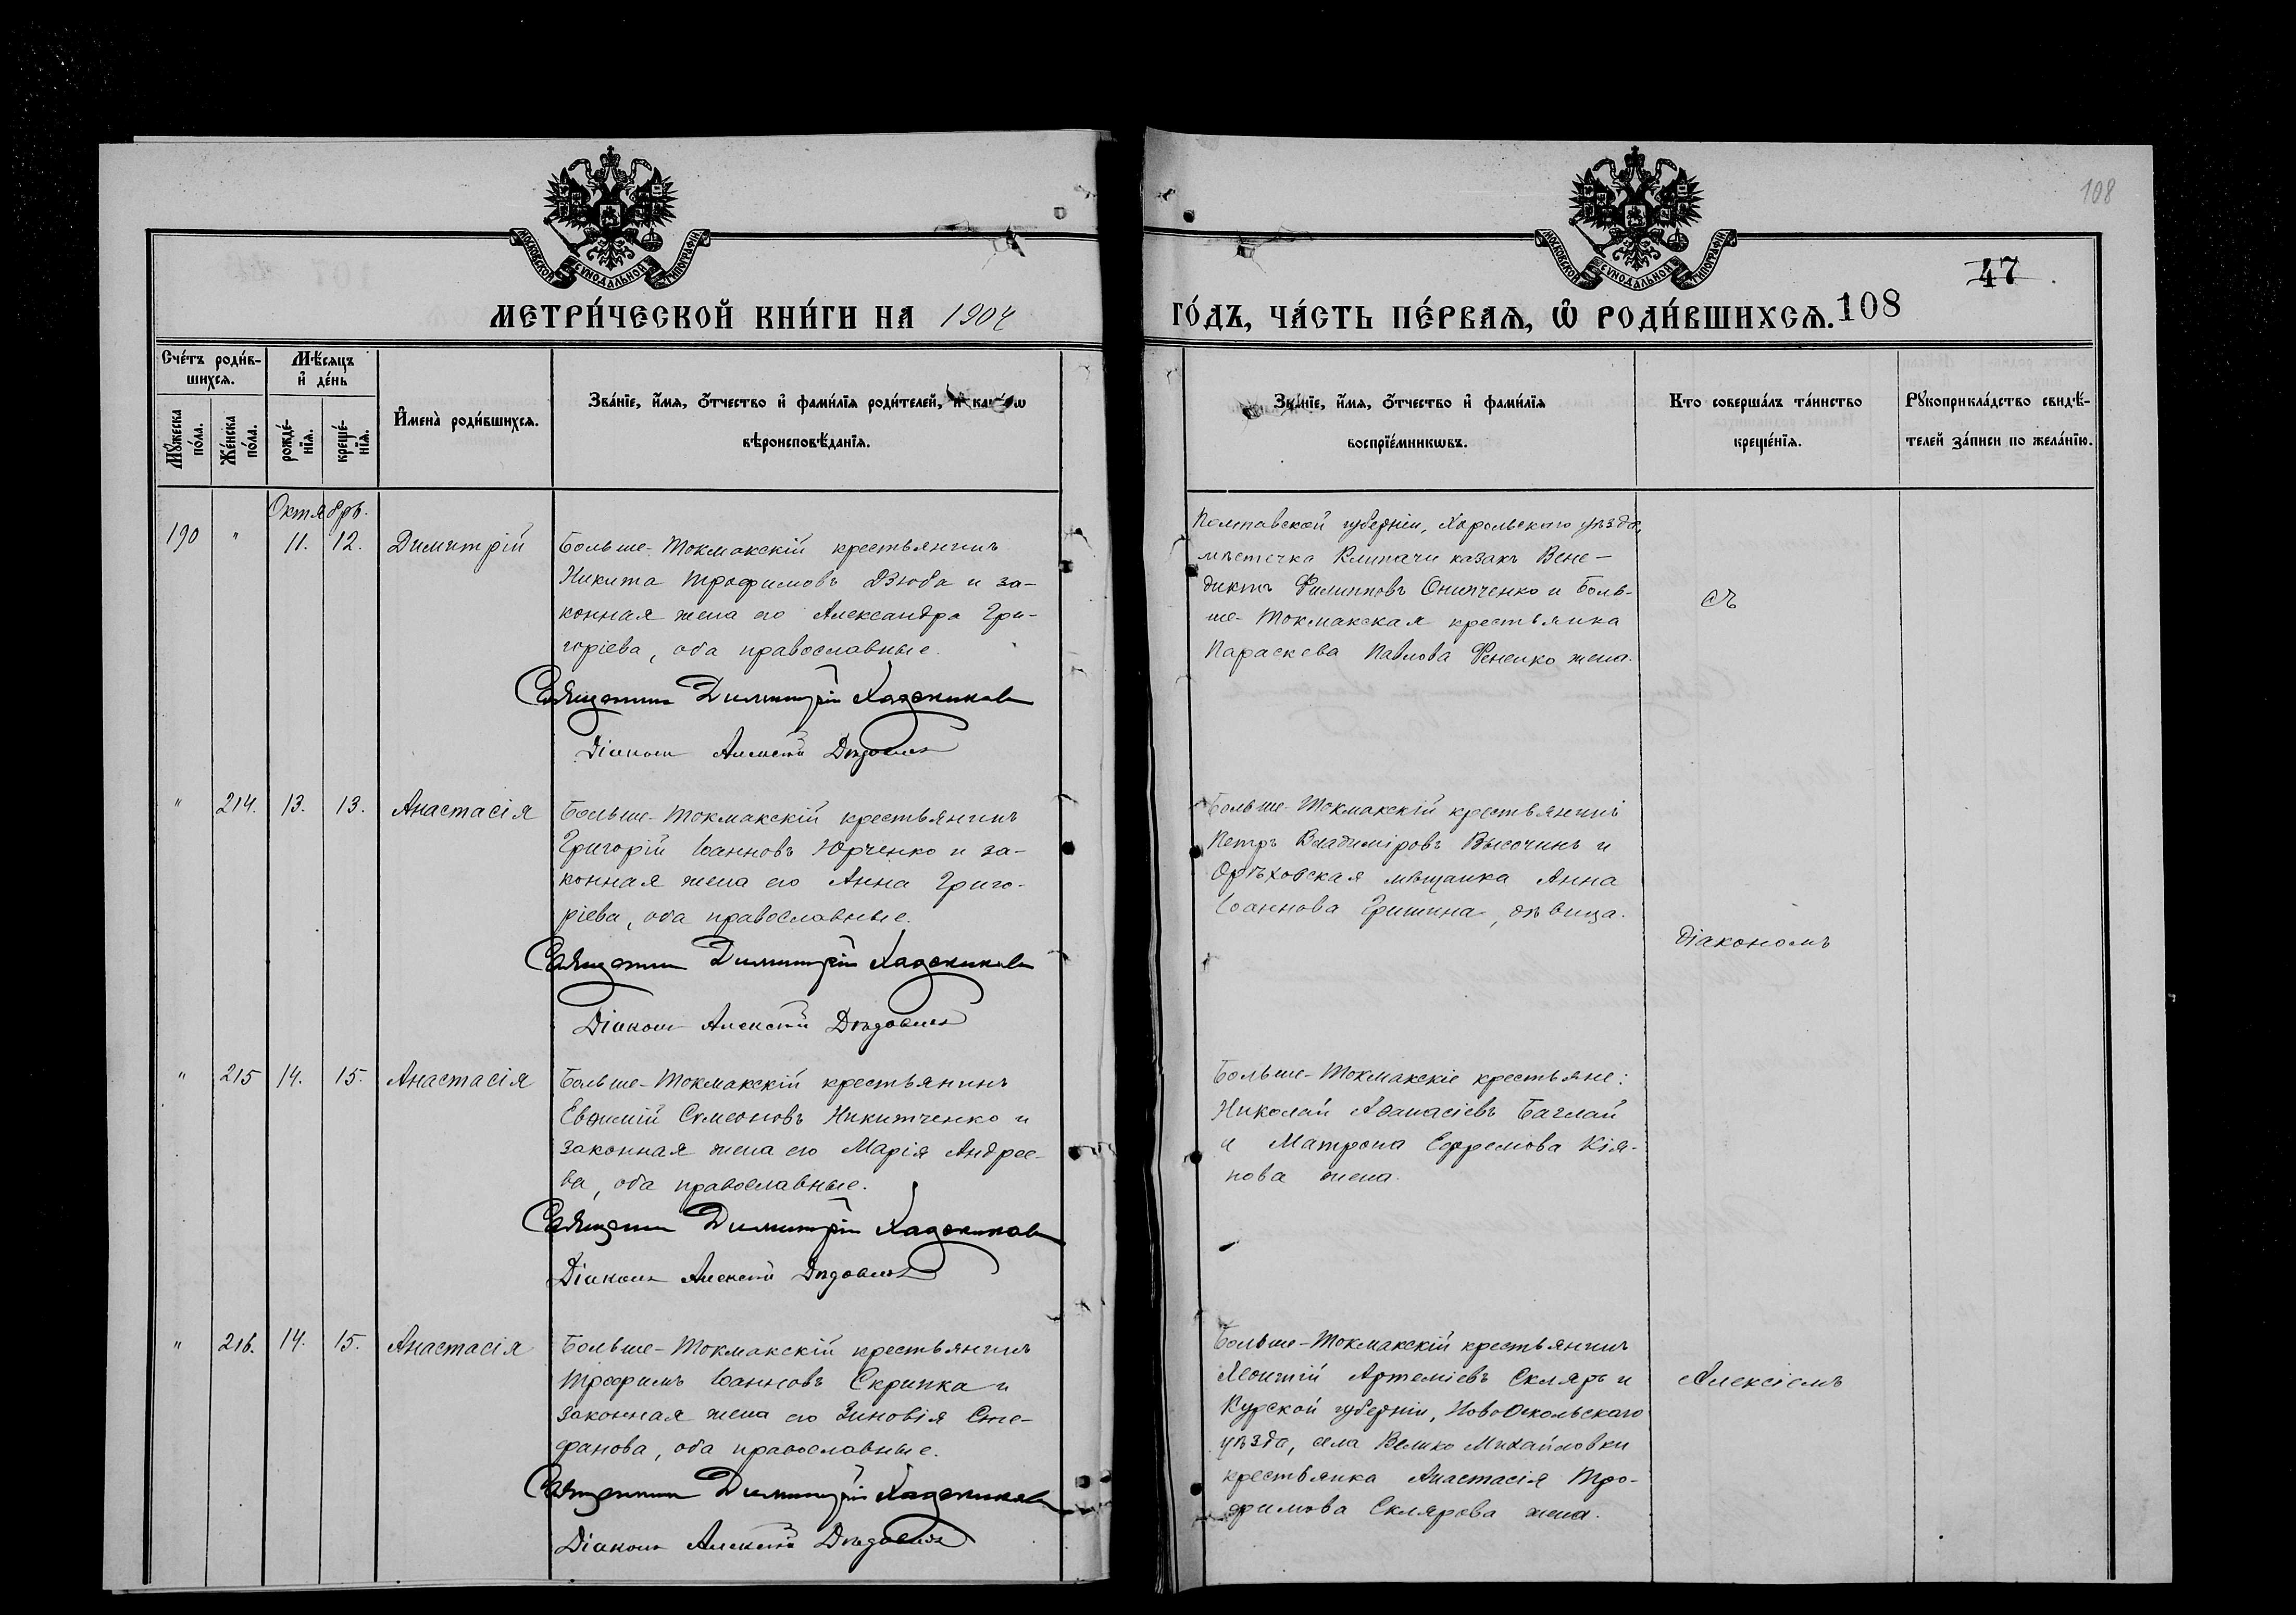 108
МОСКОВСКОЙ СѴНОДАЛЬНОЙ ТИПОГРАФІИ
МЕТРИ́ЧЕСКОЙ КНИ́ГИ НА 1904
МОСКОВСКОЙ СѴНОДАЛЬНОЙ ТИПОГРАФІИ
47
ГО́ДЪ, ЧА́СТЬ ПЕ́РВАЯ, Ѡ РОДИ́ВШИХСЯ. 108
Сче́тъ роди́в-
шихся.
Мꙋ́жеска
по́ла.
Же́нска
по́ла.
Мѣ́сяцъ
и҆ де́нь
рожде́-
нїя.
креще́-
нїя.
И҆мена̀ роди́вшихся.
Зва́нїе, и҆́мя, ѻ҆́тчество и҆ фами́лїя роди́телей,
вѣроисповѣ́данїя.
Зва́нїе, и҆́мя, ѻ҆́тчество и҆ фами́лїя
воспрїе́мникѡвъ.
Кто соверша́лъ та́инство
креще́нїя.
Рꙋкоприкла́дство свидѣ́-
телей за́писи по жела́нїю.
Октябрь.
190 " 11. 12. Димитрій
Больше-Токмакскій крестьянинъ
Никита Трофимовъ Дзюба и за-
конная жена его Александра Гри-
горіева, оба православные.
Священникъ Димитрій
Діаконъ Алексій
Полтавской губерніи, Хорольскаго уѣзда,
мѣстечка Клипачи казакъ Вене-
диктъ Филипповъ Онипченко и Боль-
ше-Токмакская крестьянка
Параскева Павлова Фененко жена.
съ
" 214. 13. 13. Анастасія
Больше-Токмакскій крестьянинъ
Григорій Іоанновъ Юрченко и за-
конная жена его Анна Григо-
ріева, оба православные.
Священникъ Димитрій
Діаконъ Алексій
Больше-Токмакскій крестьянинъ
Петръ Владиміровъ Высочинъ и
Орѣховская мѣщанка Анна
Іоаннова Гришина, дѣвица.
діакономъ
" 215 14. 15. Анастасія
Больше-Токмакскій крестьянинъ
Евѳимій Симеоновъ Никитченко и
законная жена его Марія Андрее-
ва, оба православные.
Священникъ Димитрій
Діаконъ Алексій
Больше-Токмакскіе крестьяне:
Николай Аѳанасіевъ Баглай
и Матрона Ефремова Кія-
нова жена.
" 216. 14. 15. Анастасія
Больше-Токмакскій крестьянинъ
Трофимъ Іоанновъ Скрипка и
законная жена его Зиновія Сте-
фанова, оба православные.
Священникъ Димитрій
Діаконъ Алексій
Больше-Токмакскій крестьянинъ
Леонтій Артеміевъ Скляръ и
Курской губерніи, НовоОскольскаго
уѣзда, села Велико Михайловки
крестьянка Анастасія Тро-
фимова Склярова жена.
Алексіемъ